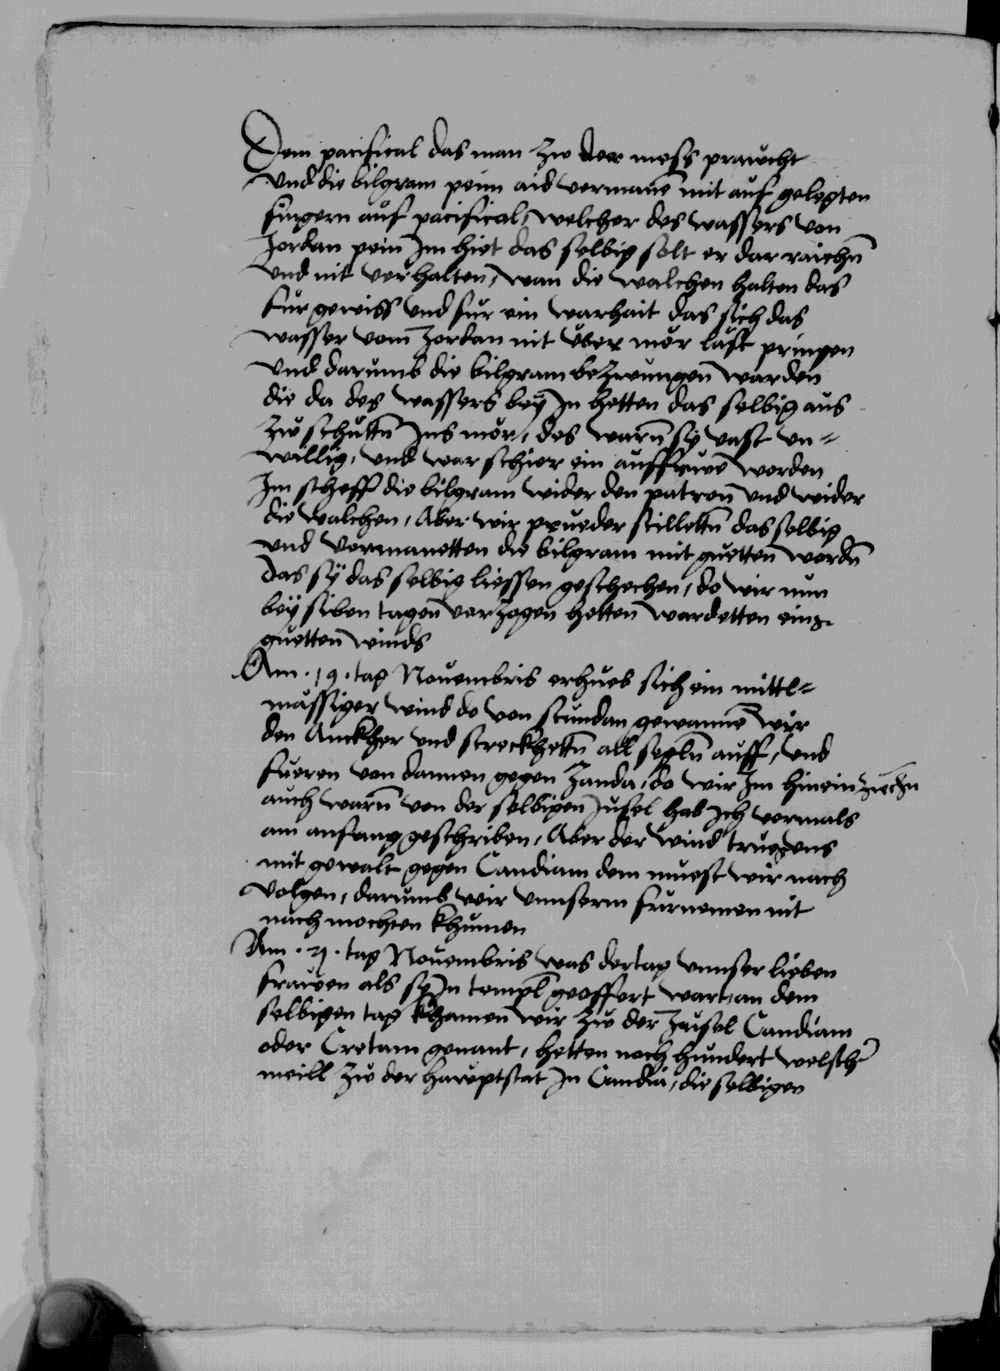 Dem pacifical das man zw der mess prawcht
vnd die bilgram peim aid vermanē mit auf gelegten
fingern auf pacifical, welcher des wassers von
Jordan pein Im hiet das selbig solt er dar raichn̄
vnd nit verhalten̄, wan die walchen halten das
fur gewiss vnd fur ein warhait das sich das
wasser vom̄ Jordan nit vber mör last pringen
vnd darumb die bilgram bezwungen̄ warden
die da des wassers beÿ In hetten das selbig aus
zw schuttn̄ Ins mör, des warn̄ sy vast vn=
willig, vnd war schier ein auffruer worden
Im scheff die bilgram wider den patron vnd wider
die walchen, Aber wir prueder stillettn̄ das selbig
vnd vermanetten die bilgram mit guetten wordn̄
das sÿ das selbig liessen geschechen, do wir nun
beÿ siben tagen̄ verzogen hetten̄ wardetten eins
guetten̄ winds
Am . 19 . tag Nouembris erhueb sich ein mittl=
mässiger wind do von stundan gewannē wir
den Anckher vnd streckhettn̄ all segln̄ auff, vnd
fueren von dannen gegen Zanda, do wir Im hinein ziechn̄
auch warn̄ von der selbigen Jnsel hab Ich vormals
am anfang geschriben, Aber der wind trueg vns
mit gewalt gegen Candiam dem muest wir nach
volgen, darumb wir vnnserm furnemen nit
nach mochten khumen
Am . 21 . tag Nouembris was der tag vnnser lieben
frawen als sy In templ̄ geoffert wart, an dem
selbigen tag khamen̄ wir zw der Jnsel Candiam
oder Cretam genant, hetten noch hundert welsch
meill zw der hawptstat In Candia, die selbigen